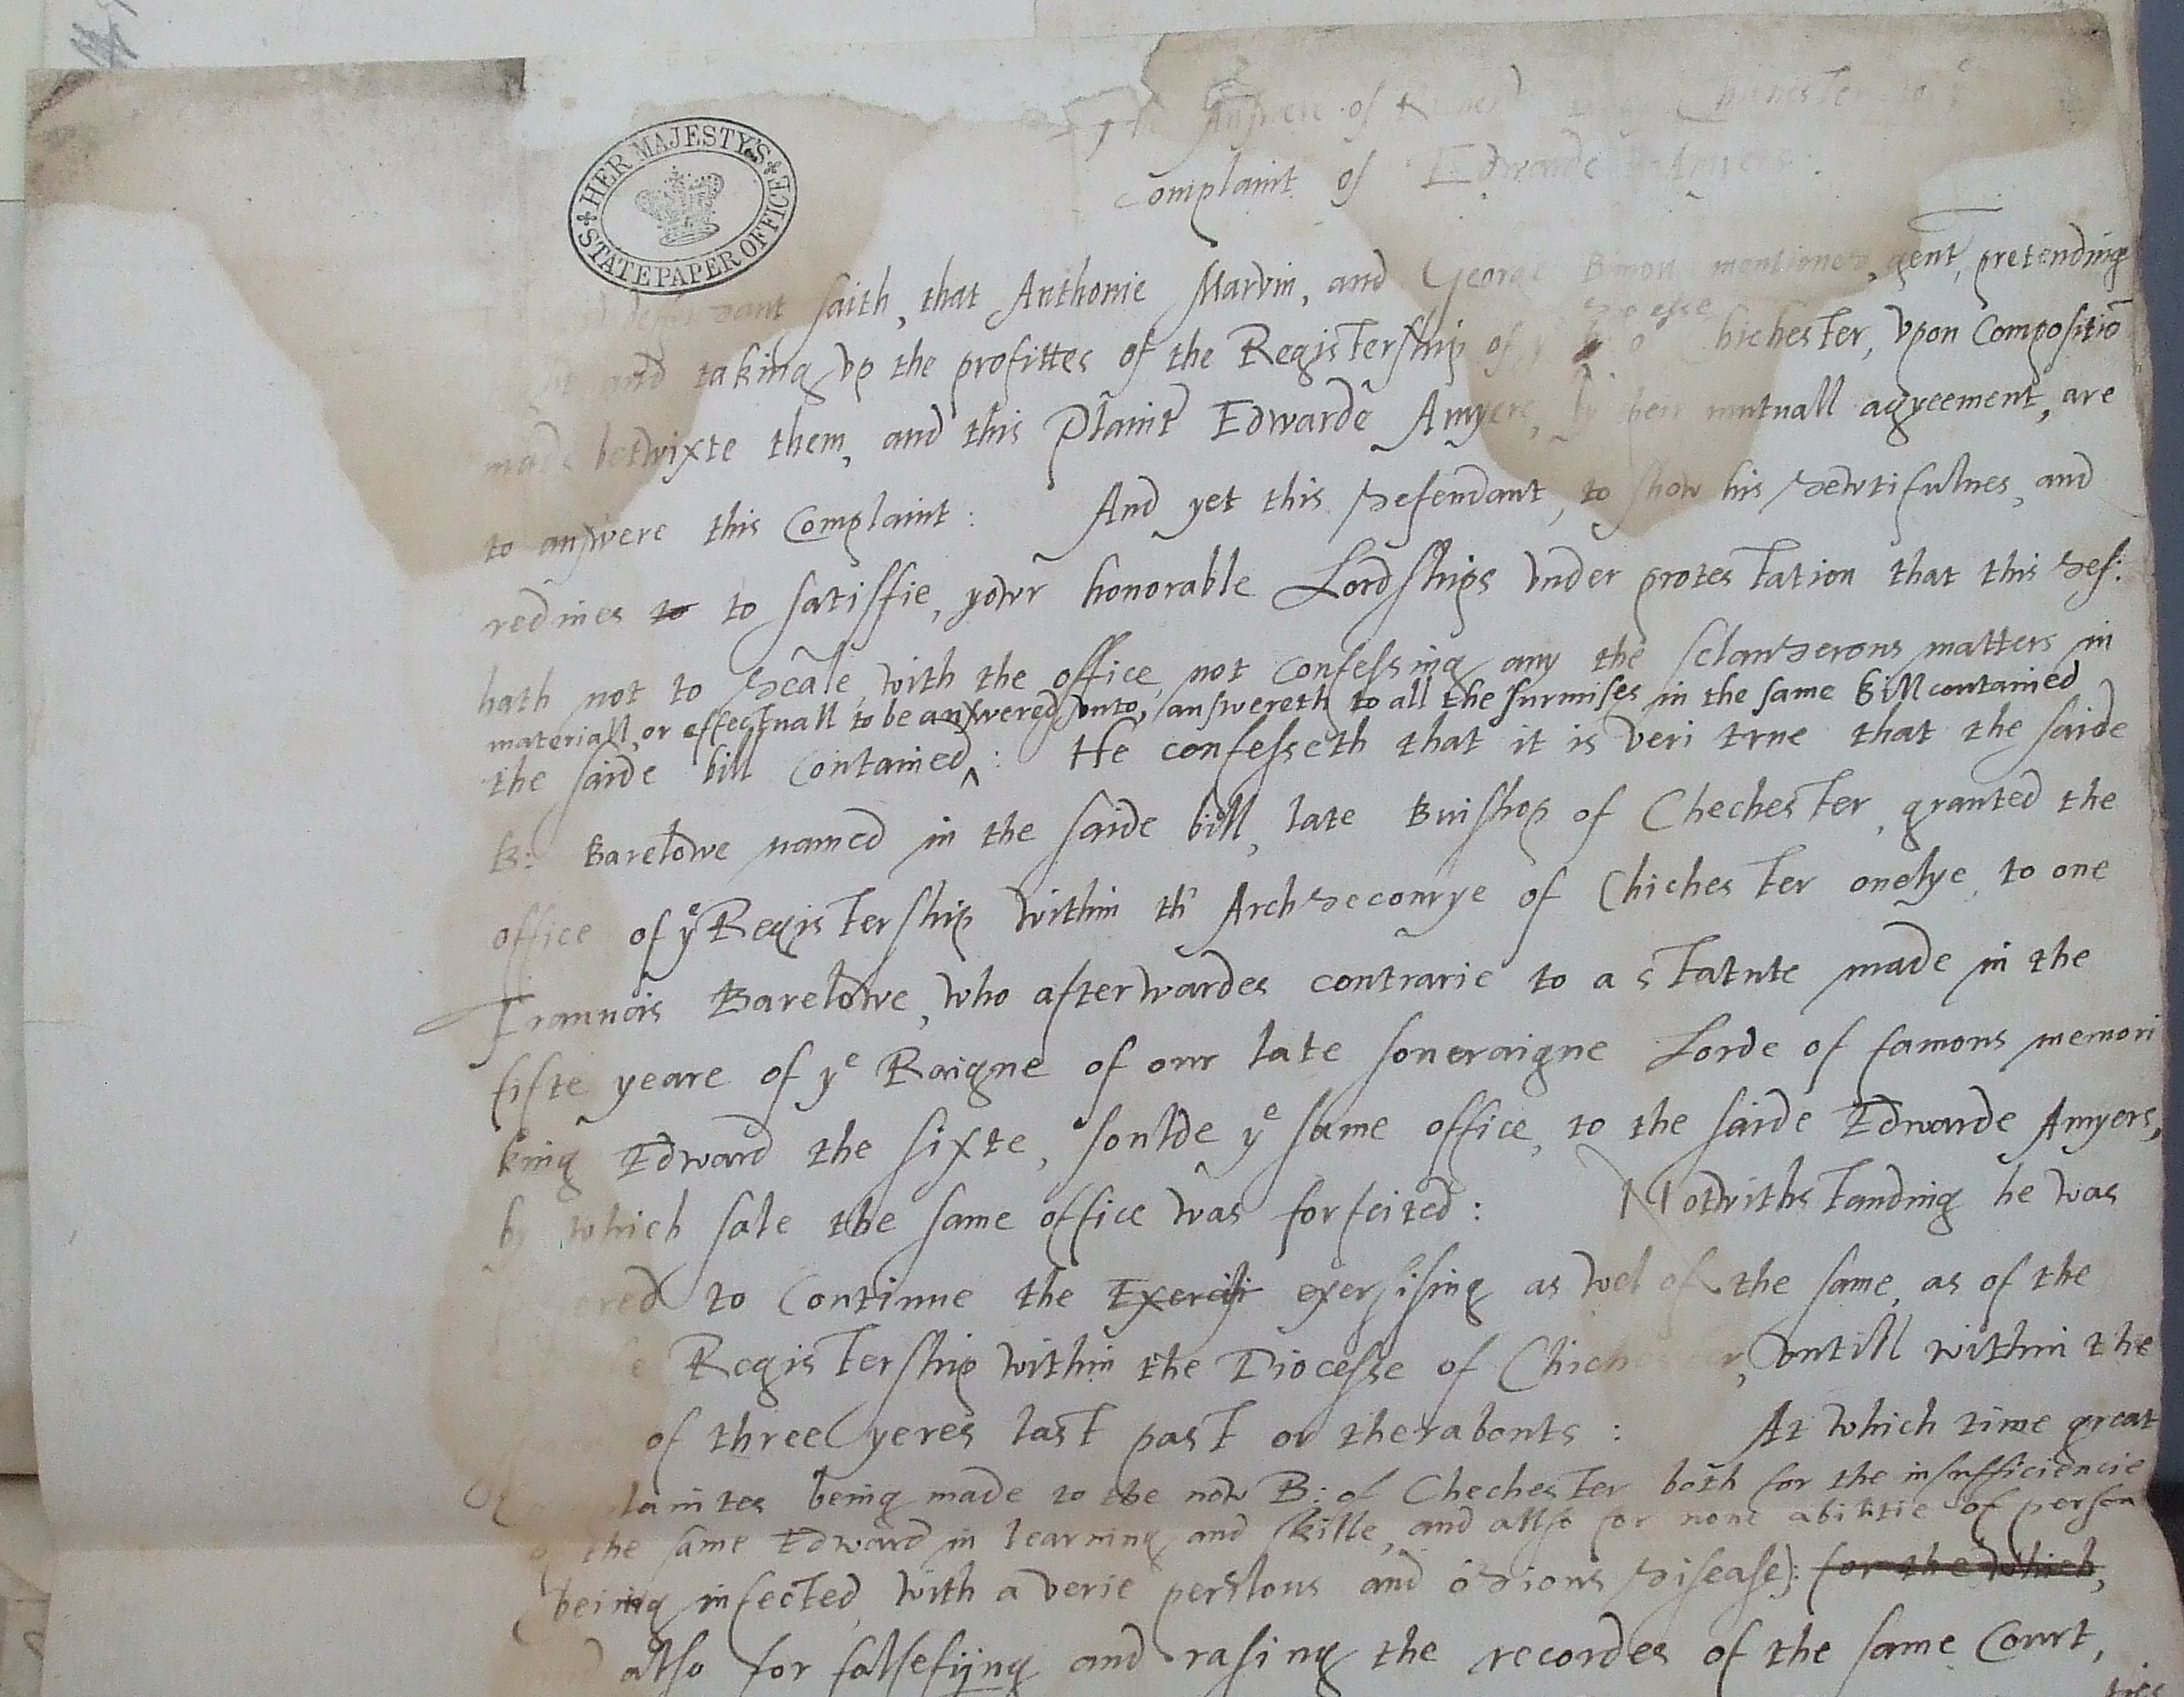 HER MAJESTY'S STATE PAPER OFFICE
Answere of Chichester to ye
Complaint of Edwarde Amyers:
saith, that Anthonie Marvin, and George mentioned, gent, pretending
Diocesse
and taking vp the profittes of the Registership of Chichester, vpon Compositiō
made betwixte them, and this Plaint Edwarde Amyers, by their mutuall agreement, are
to answere this Complaint: And yet this defendant, to show his dewtifulnes, and
redines to to satisfie, yowr honorable Lordships vnder protestation that this def:
hath not to deale, with the office, not Confessing any the sclanderous matters in
materiall, or effectuall to be answered vnto, answereth to all the surmises in the same bill contained
the saide bill Contained ^: He confesseth that it is veri true that the saide
B: Barelowe named in the saide bill, late Buishop of Chechester, granted the
office of ye Registership within th' Archdeconrye of Chichester onelye, to one
Frauncis Barelowe, who afterwardes contrarie to a statute made in the
fifte yeare of ye Raigne of our late soueraigne Lorde of famous memori
king Edward the sixte, soulde ye same office, to the saide Edwarde Amyers,
by which sale the same office was forfeited: Notwithstanding he was
to Continue the Exercisi exersising as wel of the same, as of the
Registership within the Diocesse of Chichester, vntill within the
of three yeres last past or therabouts: At which time great
Complaintes being made to the now B: of Chechester both for the insufficiencie
of the same Edward in learning and skille, and also for none abilitie of person
being infected, with a verie perilous and odious disease): for the which,
and also for falsefijng and rasing the recordes of the same Court,